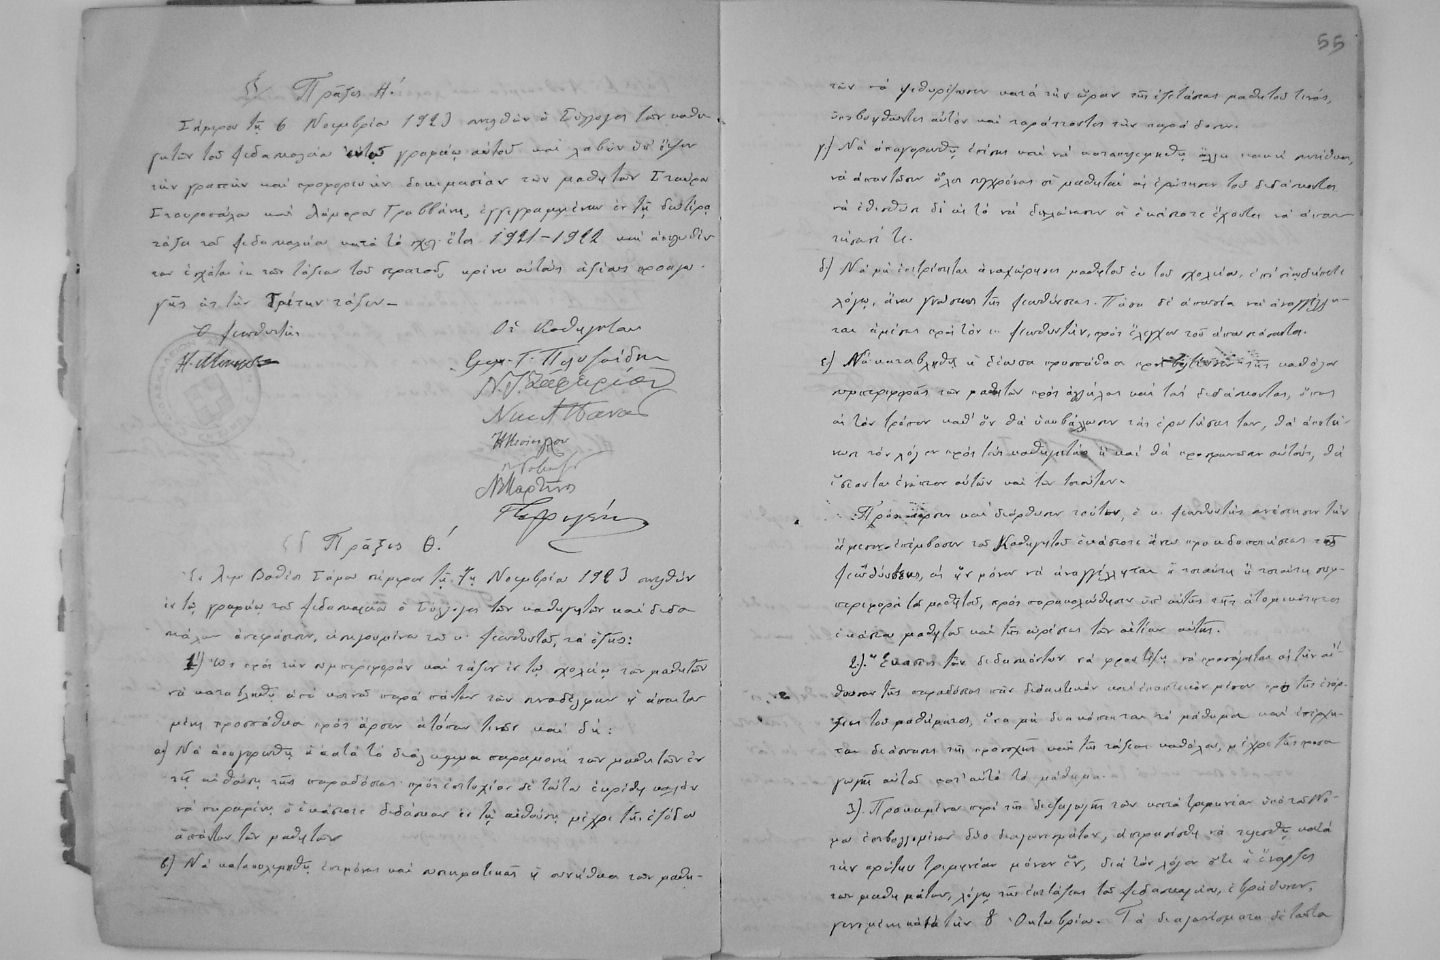 Πράξις Η!
Σήμερον τῇ 6 Νοεμβρίου 1923 συνελθὼν ὁ Σύλλογος τῶν καθη-
γητῶν τοῦ Διδασκαλείου ἐν τῷ γραφείῳ αὐτοῦ καὶ λαβὼν ὑπ' ὄψιν
τὴν γραπτὴν καὶ προφορικὴν δοκιμασίαν τῶν μαθητῶν Σταύρου
καὶ Γραββάνη, ἐγγεγραμμένων ἐν τῇ δευτέρᾳ
τάξει τοῦ Διδασκαλείου κατὰ τὸ σχολ. ἔτος 1921-1922 καὶ
ἐκ τῶν τάξεων τοῦ στρατοῦ, κρίνει αὐτοὺς ἀξίους προαγω-
γῆς εἰς τὴν Τρίτην τάξιν.
Ὁ Διευθυντὴς
Οἱ Καθηγηταὶ
Πράξις Θ!
Ἐν Λιμ. Βαθέος Σάμου σήμερον τῇ 7ῃ Νοεμβρίου 1923 συνελθὼν
ἐν τῷ γραφείῳ τοῦ Διδασκαλείου ὁ Σύλλογος τῶν καθηγητῶν καὶ διδα-
σκάλων ἀπεφάσισεν, εἰσηγουμένου τοῦ κ. Διευθυντοῦ, τὰ ἑξῆς:
1) Ὡς πρὸς τὴν συμπεριφορὰν καὶ τάξιν ἐν τῷ σχολείῳ τῶν μαθητῶν
νὰ καταβληθῇ ἀπὸ κοινοῦ παρὰ πάντων τῶν συναδέλφων ἡ ἀπαιτου-
μένη προσπάθεια πρὸς ἄρσιν ἀτόπων τινῶν καὶ δή:
α) Νὰ ἀπαγορευθῇ ἡ κατὰ τὸ διάλειμμα παραμονὴ τῶν μαθητῶν ἐν
τῇ αἰθούσῃ τῆς παραδόσεως· πρὸς ἐπιτυχίαν δὲ τούτου ἐκρίθη καλὸν
νὰ παραμένῃ ὁ ἑκάστοτε διδάσκων ἐν τῇ αἰθούσῃ μέχρι τῆς ἐξόδου
ἁπάντων τῶν μαθητῶν
β) Νὰ καταπολεμηθῇ ἐπιμόνως καὶ συστηματικῶς ἡ συνήθεια τῶν μαθη-
55
τῶν νὰ ψιθυρίζωσιν κατὰ τὴν ὥραν τῆς ἐξετάσεως μαθητοῦ τινός,
ὑποβοηθοῦντες αὐτὸν καὶ ταράττοντες τὴν παράδοσιν.
γ) Νὰ ἀπαγορευθῇ ἐπίσης καὶ νὰ καταπολεμηθῇ ἄλλη κακὴ συνήθεια,
νὰ ἀπαντῶσιν ὅλοι συγχρόνως οἱ μαθηταὶ εἰς ἐρώτησιν τοῦ διδάσκοντος
νὰ ἐθισθῶσι δὲ εἰς τὸ νὰ δηλώνωσιν οἱ ἑκάστοτε ἔχοντες νὰ ἀπαν-
τήσωσί τι.
δ) Νὰ μὴ ἐπιτρέπηται ἀναχώρησις μαθητοῦ ἐκ τοῦ σχολείου, ἐπὶ οἱῳδήποτε
λόγῳ, ἄνευ γνώσεως τῆς Διευθύνσεως. Πᾶσα δὲ ἀπουσία νὰ ἀναγγέλλη-
ται ἀμέσως πρὸς τὸν κ. Διευθυντήν, πρὸς ἔλεγχον τοῦ ἀπουσιάσαντος.
ε) Νὰ καταβληθῇ ἡ δέουσα προσπάθεια πρὸς βελτίωσιν τῆς καθόλου
συμπεριφορᾶς τῶν μαθητῶν πρὸς ἀλλήλους καὶ τοὺς διδάσκοντας, ὅπως
εἰς τὸν τρόπον καθ' ὃν θὰ ὑποβάλλωσιν τὰς ἐρωτήσεις των, θὰ ἀπευθύ-
νωσι τὸν λόγον πρὸς τοὺς καθηγητὰς ἢ καὶ θὰ προσφωνῶσιν αὐτούς, θὰ
ἵστανται ἐνώπιον αὐτῶν καὶ τῶν τοιούτων.
Πρὸς ἄρσιν καὶ διόρθωσιν τούτων, ὁ κ. Διευθυντὴς συνέστησεν τὴν
ἄμεσον ἐπέμβασιν τοῦ Καθηγητοῦ ἑκάστοτε ἄνευ προειδοποιήσεως τῆς
Διευθύνσεως, εἰς ἣν μόνον νὰ ἀναγγέλληται ἡ τοιαύτη ἢ τοιαύτη συμ-
περιφορὰ τοῦ μαθητοῦ, πρὸς παρακολούθησιν ὑπ' αὐτῆς τῆς ἀτομικότητος
ἑκάστου μαθητοῦ καὶ τῆς εὑρέσεως τῶν αἰτίων αὐτῆς.
2) Ἕκαστος τῶν διδασκόντων νὰ φροντίζῃ νὰ προσάγηται εἰς τὴν αἴ-
θουσαν τῆς παραδόσεως πᾶν διδακτικὸν καὶ ἐποπτικὸν μέσον πρὸ τῆς ἐνάρ-
ξεως τοῦ μαθήματος, ἵνα μὴ διακόπτηται τὸ μάθημα καὶ ἐπέρχη-
ται διάσπασις τῆς προσοχῆς καὶ τῆς τάξεως καθόλου, μέχρι τῆς προσα-
γωγῆς αὐτοῦ κατ' αὐτὸ τὸ μάθημα.
3) Προκειμένου περὶ τῆς διεξαγωγῆς τῶν κατὰ τριμηνίαν ὑπὸ τοῦ Νό-
μου ἐπιβαλλομένων δύο διαγωνισμάτων, ἀπεφασίσθη νὰ τελεσθῇ κατὰ
τὴν πρώτην τριμηνίαν μόνον ἕν, διὰ τὸν λόγον ὅτι ἡ ἔναρξις
τῶν μαθημάτων, λόγῳ τῆς ἐπιτάξεως τοῦ Διδασκαλείου, ἐβράδυνεν,
γενομένη κατὰ τὴν 8 Ὀκτωβρίου. Τὰ διαγωνίσματα δὲ ταῦτα